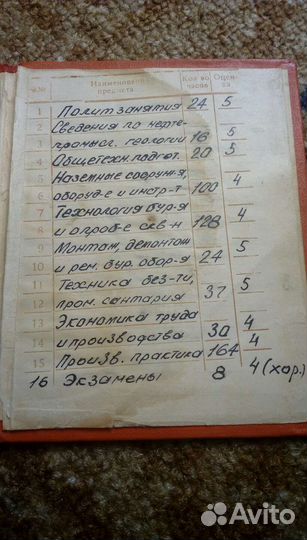 №№ Наименование предмета Кол-во часов Оцен-ка
1 Политзанятия 24 5
2 Сведения по нефте-
3 промысл. геологии 16 5
4 Общетехн. подгот. 20 5
5 Наземные сооруж-я,
6 оборуд-е и инстр-т 100 4
7 Технология бур-я
8 и опроб-е скв-н 128 4
9 Монтаж, демонтаж
10 и рем. бур. обор-я 24 5
11 Техника без-ти,
12 пром. санитария 37 5
13 Экономика труда
14 и производства 30 4
15 Произв. практика 164 4
16 Экзамены 8 4 (хор.)
Avito